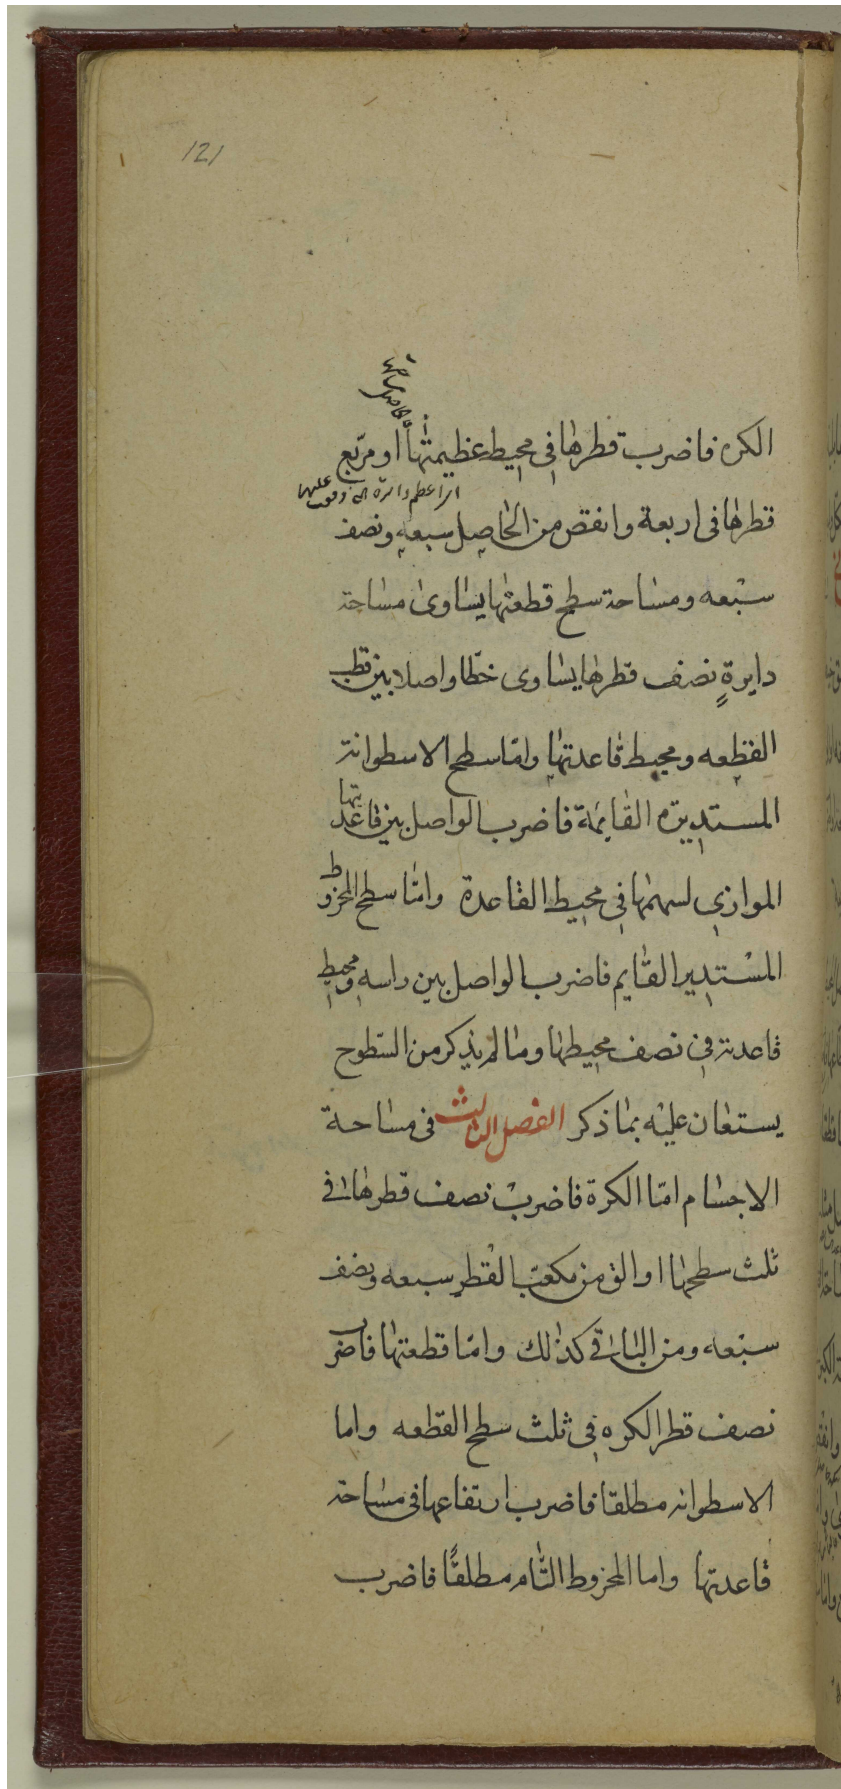 121
الكره فاضرب قطرها في محيط عظيمتها او مربع
اى اعظم دائرة
قطرها فى اربعة وانقص من الحاصل سبعه ونصف
سبعه ومساحة سطح قطعتها يساوى مساحة
دايرةٍ نصف قطرها يساوى خطّا واصلا بين قطب
القطعه ومحيط قاعدتها وامّا سطح الاسطوانة
المستديره القايمَة فاضرب الواصل بين قاعدتيها
الموازى لسهمها فى محيط القاعدة وامّا سطح المخروط
المستدير القايم فاضرب الواصل بين راسه ومحيط
قاعدته فى نصف محيطها وما لم يذكر من السّطوح
يستعان عليه بما ذكر الفصل الثالث فى مساحة
الاجسام امّا الكرة فاضرب نصف قطرها فى
ثلث سطحها او الق من مكعب القطر سبعه ونصف
سبعه ومن الباقى كذلك وامّا قطعتها فاضرب
نصف قطر الكره فى ثلث سطح القطعه واما
الاسطوانه مطلقا فاضرب ارتفاعها فى مساحة
قاعدتها واما المخروط التّام مطلقًا فاضرب